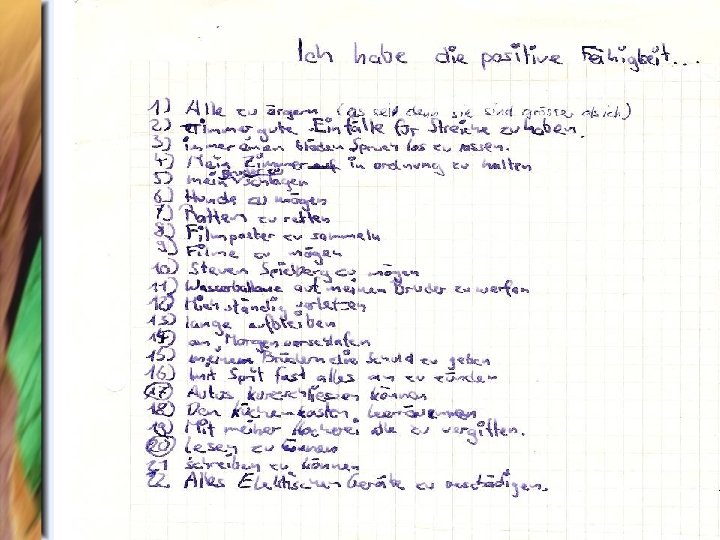 Ich habe die positive Fähigkeit...
1) Alle zu ärgern (es sei denn sie sind grösser als ich)
2) immer gute Einfälle für Streiche zu haben.
3) immer einen blöden Spruch los zu lassen.
4) Mein Zimmer in ordnung zu halten
5) mein schlagen
6) Hunde zu mögen
7) Ratten zu retten
8) Filmposter zu sammeln
9) Filme zu mögen
10) Steven Spielberg zu mögen
11) Wasserballone auf meinen Bruder zu werfen
12) Mich ständig verletzen
13) lange aufbleiben
14) am Morgen verschlafen
15) meinem Brüdern die Schuld zu geben
16) mit Sprit fast alles an zu zünden
17) Autos kurzschliessen können
18) Den Küchenkasten leerräumen
19) Mit meiner Kocherei alle zu vergiften.
20) Lesen zu können
21 schreiben zu können
22. Alles Elektischen Geräte zu beschädigen.